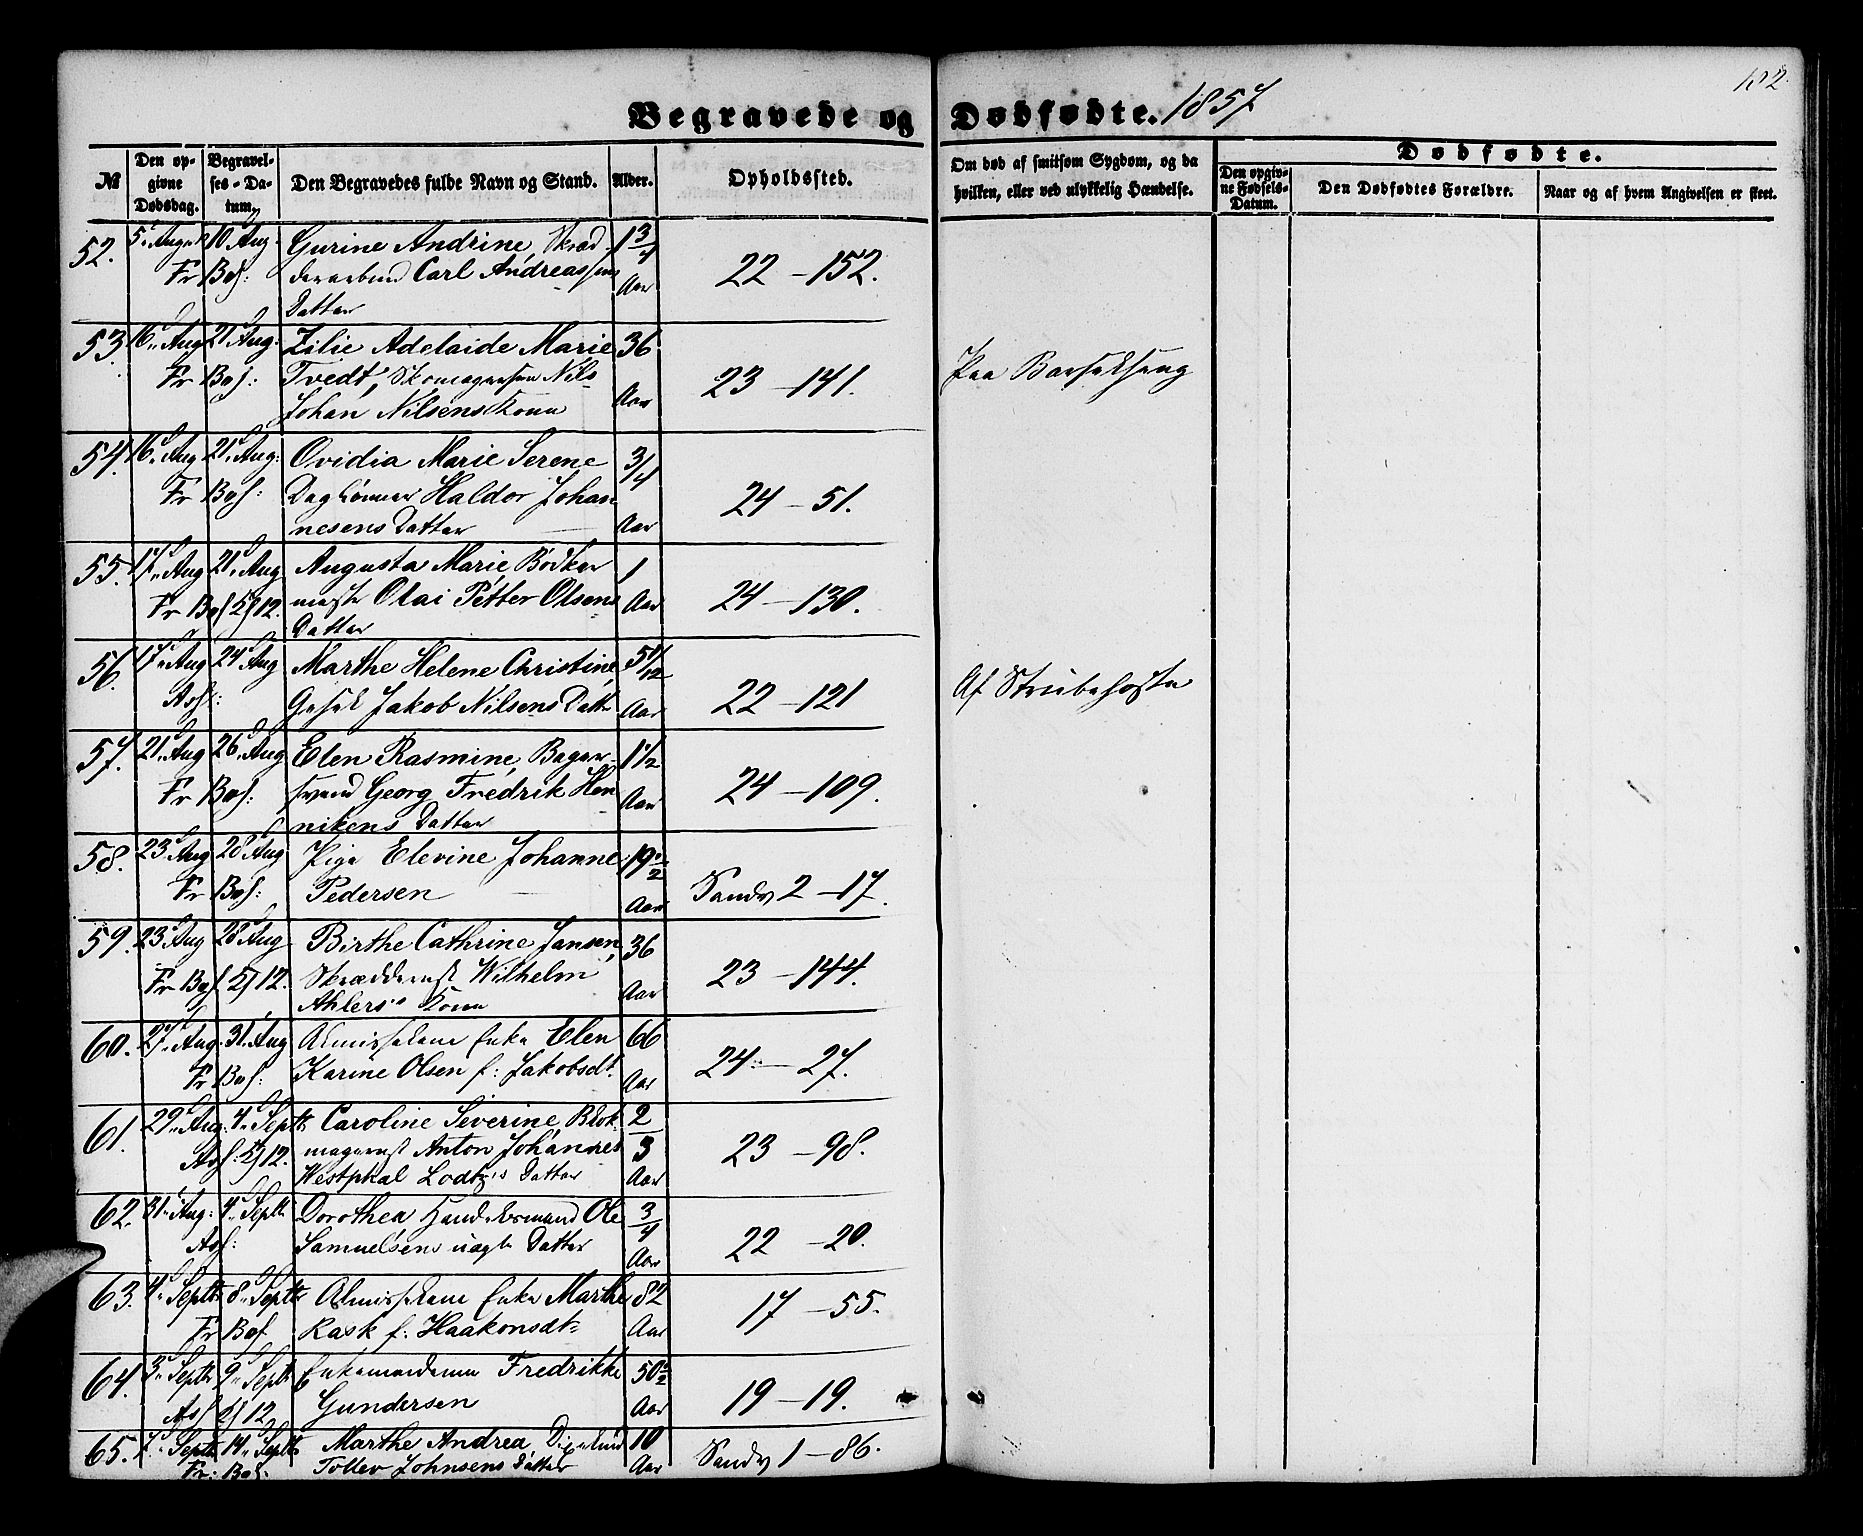 132.
Begravede og Dødfødte. 1857
№
Den opgivne Dødsdag.
Begravelses-Datum.
Den Begravedes fulde Navn og Stand.
Alder.
Opholdssted.
Om død af smitsom Sygdom, og da
hvilken, eller ved ulykkelig Hændelse.
Dødfødte.
Den opgivne Fødsels-Datum.
Den Dødfødtes Forældre.
Naar og af hvem Angivelsen er skeet.
52. 5" August 10 Aug. Gurine Andrine, Skræd- 1 3/4
Fr Bos: Carl Andreassens Aar 22 - 152.
Datter
53. 16" Aug 21" Aug: Zilie Adelaide Marie 36
Fr Bos: Tvedt, Nils 23 - 141. Paa Barselseng
Johan Nilsens Kone Aar
54. 16" Aug 21" Aug: Ovidia Marie Serene 3/4
Fr Bos: Daglønner Haldor Johan 24 - 51.
nesens Datter Aar
55. 17" Aug 21" Aug Augusta Marie Bødker 1
Fr Bos 2/12. mester Olai Petter Olsens Aar 24 - 130.
Datter
56. 17" Aug 24" Aug Marthe Helene Christine, 5
Gesel Jakob Nilsens Datter Aar 22 - 121 Af Strubehoste
57. 21" Aug 26" Aug Elen Rasmine, Bager- 1 1/2
Fr Bos: svend Georg Fredrik Hen Aar 24 - 109.
nikens Datter
58. 23" Aug 28" Aug Pige Elevine Johanne 19 1/2
Fr Bos: Pedersen Aar Sandv 2 - 17.
59. 23" Aug 28" Aug Birthe Cathrine Jansen, 36
Fr Bos 2/12. Wilhelm 23 - 144.
Ahlers's Kone Aar
60. 27" Aug. 31" Aug Almisselem Enke Elen 66
Fr Bos: Karine Olsen f: Jakobsdt. Aar 24 - 27.
61. 29" Aug: 4" Septb Caroline Severine, Blok- 2/3
Anton Johannes 23 - 98.
Westphal Lodtz's Datter Aar
62. 31" Aug: 4" Septb Dorothea Handelsmand Ole 3/4
Samuelsens uægte Datter Aar 22 - 20.
63. 4" Septb 8" Septb Almisselem Enke Marthe 82
Fr Bos Rask f. Haakonsdt: Aar 17 - 55.
64. 3" Septb 9" Septb Enkemadame Fredrikke 50 1/2
Gundersen Aar 19 - 19.
65. 7" Septb 14" Septb Marthe Andrea, 10
Fr: Bos: Tollev Johnsens Datter Aar Sandv 1 - 86.